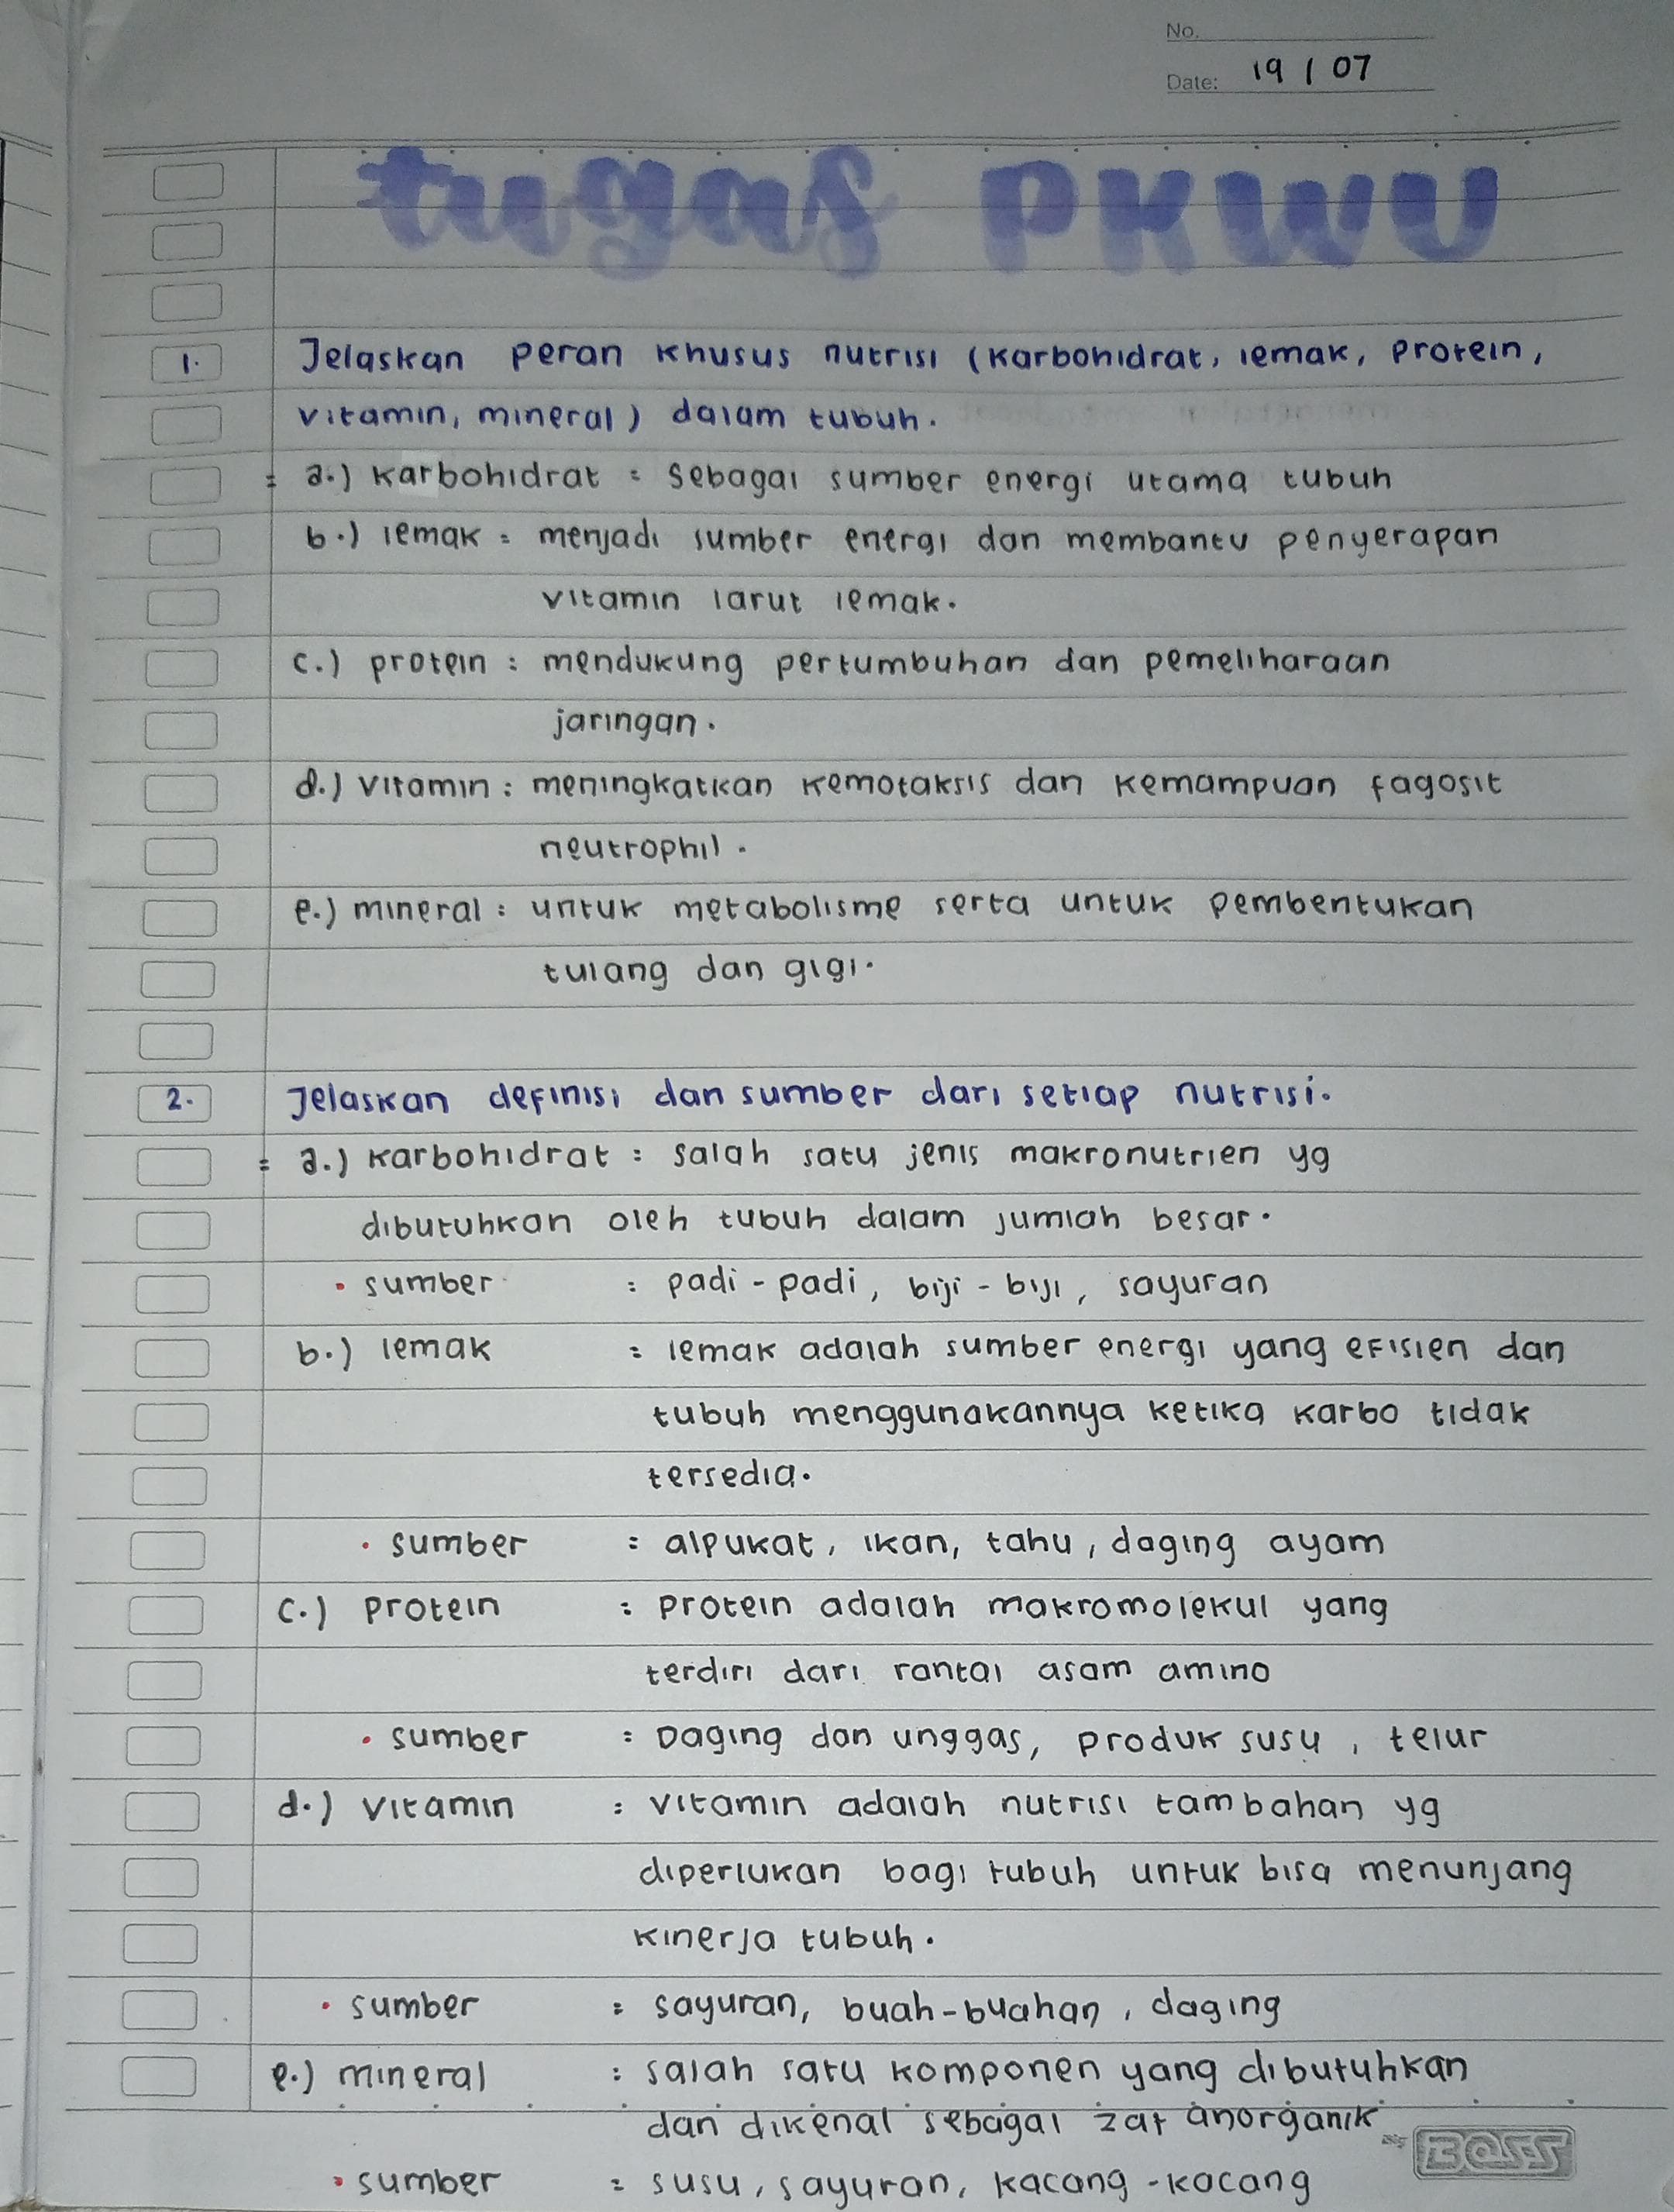 No.
Date: 19 / 07
tugas PKWU
1. Jelaskan peran khusus nutrisi (karbohidrat, lemak, protein,
vitamin, mineral) dalam tubuh.
= a.) karbohidrat : sebagai sumber energi utama tubuh
b.) lemak : menjadi sumber energi dan membantu penyerapan
vitamin larut lemak.
c.) protein : mendukung pertumbuhan dan pemeliharaan
jaringan.
d.) vitamin : meningkatkan kemotaksis dan kemampuan fagosit
neutrophil.
e.) mineral : untuk metabolisme serta untuk pembentukan
tulang dan gigi.
2. Jelaskan definisi dan sumber dari setiap nutrisi.
= a.) karbohidrat : salah satu jenis makronutrien yg
dibutuhkan oleh tubuh dalam jumlah besar.
• sumber : padi - padi, biji - biji, sayuran
b.) lemak : lemak adalah sumber energi yang efisien dan
tubuh menggunakannya ketika karbo tidak
tersedia.
• sumber : alpukat, ikan, tahu, daging ayam
c.) protein : protein adalah makromolekul yang
terdiri dari rantai asam amino
• sumber : Daging dan unggas, produk susu, telur
d.) vitamin : vitamin adalah nutrisi tambahan yg
diperlukan bagi tubuh untuk bisa menunjang
kinerja tubuh.
• sumber : sayuran, buah-buahan, daging
e.) mineral : salah satu komponen yang dibutuhkan
dan dikenal sebagai zat anorganik
BOSS
• sumber : susu, sayuran, kacang - kacang